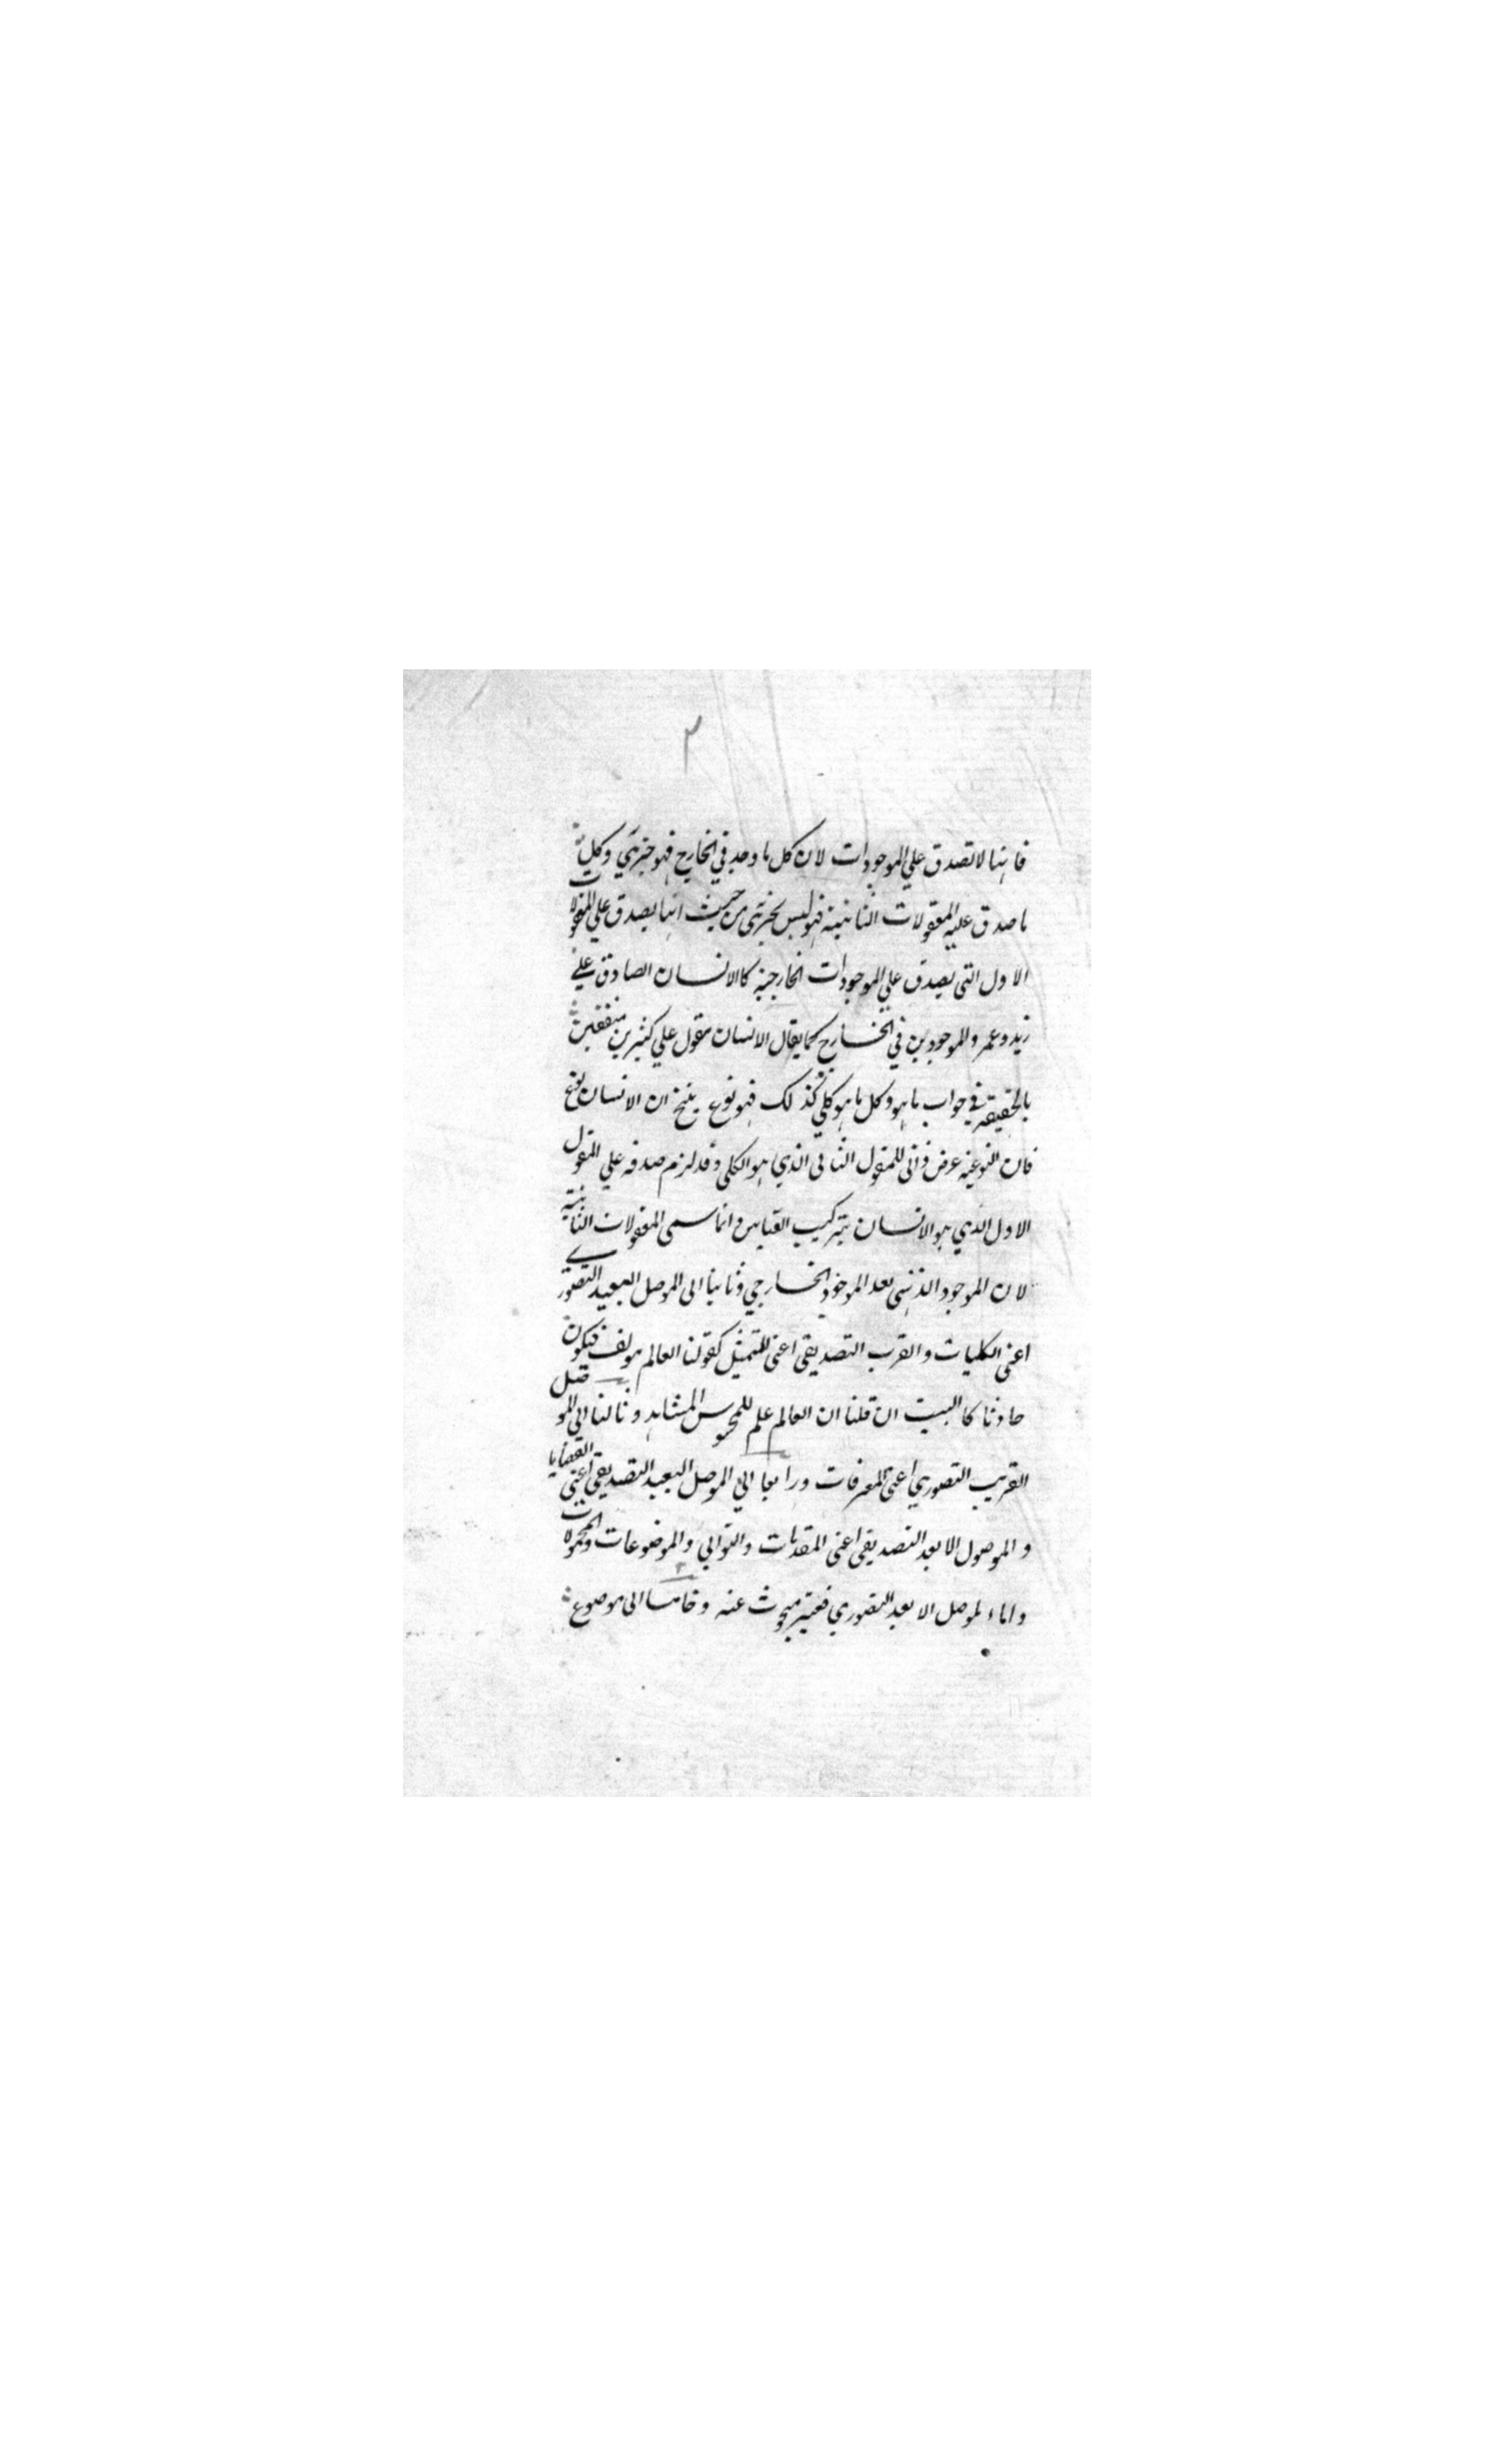 ٣
فانها لا تصدق علي الموجودات لان كل ما وجد في الخارج فهو جزئي وكل
ما صدق عليه المعقولات الثانية فهو ليس بجزئي من حيث انها يصدق علي المعقولات
الاول التي يصدق علي الموجودات الخارجية كالانسان الصادق علي
زيد وعمر والموجودين في الخارج كما يقال الانسان مقول علي كثيرين متفقين
بالحقيقة في جواب ما هو وكل ما هو كلي كذلك فهو نوع ينتج ان الانسان نوع
فان النوعية عرض ذاتي للمقول الثاني الذي هو الكلي وقد لزم صدقه علي المقول
الاول الذي هو الانسان بتركيب القياس وانما سمى المعقولات الثانية
لان الموجود الذهني بعد الموجود الخارجي وثانيا الى الموصل البعيد التصوري
اعني الكليات والقرب التصديقي اعني للتمثيل كقولنا العالم مولف فيكون
حادثا كالبيت ان قلنا ان العالم علم للمحسوس المشاهد وثالثا الى الموصل
القريب التصوري اعني المعرفات ورابعا الي الموصل البعيد التصديقي اعني القضايا
والموصول الابعد التصديقي اعني المقدمات والتوالي والموضوعات والمحمولات
واما الموصل الابعد التصوري فغير مبحوث عنه وخامسا الى موضوع